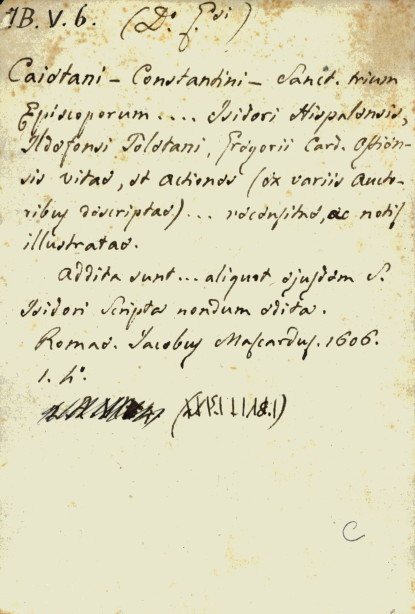 1B. V. 6.
Caietani – Constantini – Sanct. trium
Episcoporum .... Isidori Hispalensis,
Ildefonsi Toletani, Gregorii Card. Ostien-
sis vitae, et actiones (ex variis Aucto-
ribus descriptae) ... recensitae, ac notis
illustratae.
Addita sunt ... aliquot ejusdem S.
Isidori Scripta nondum edita.
Romae. Jacobus Mascardus. 1606.
1. 4°.
C